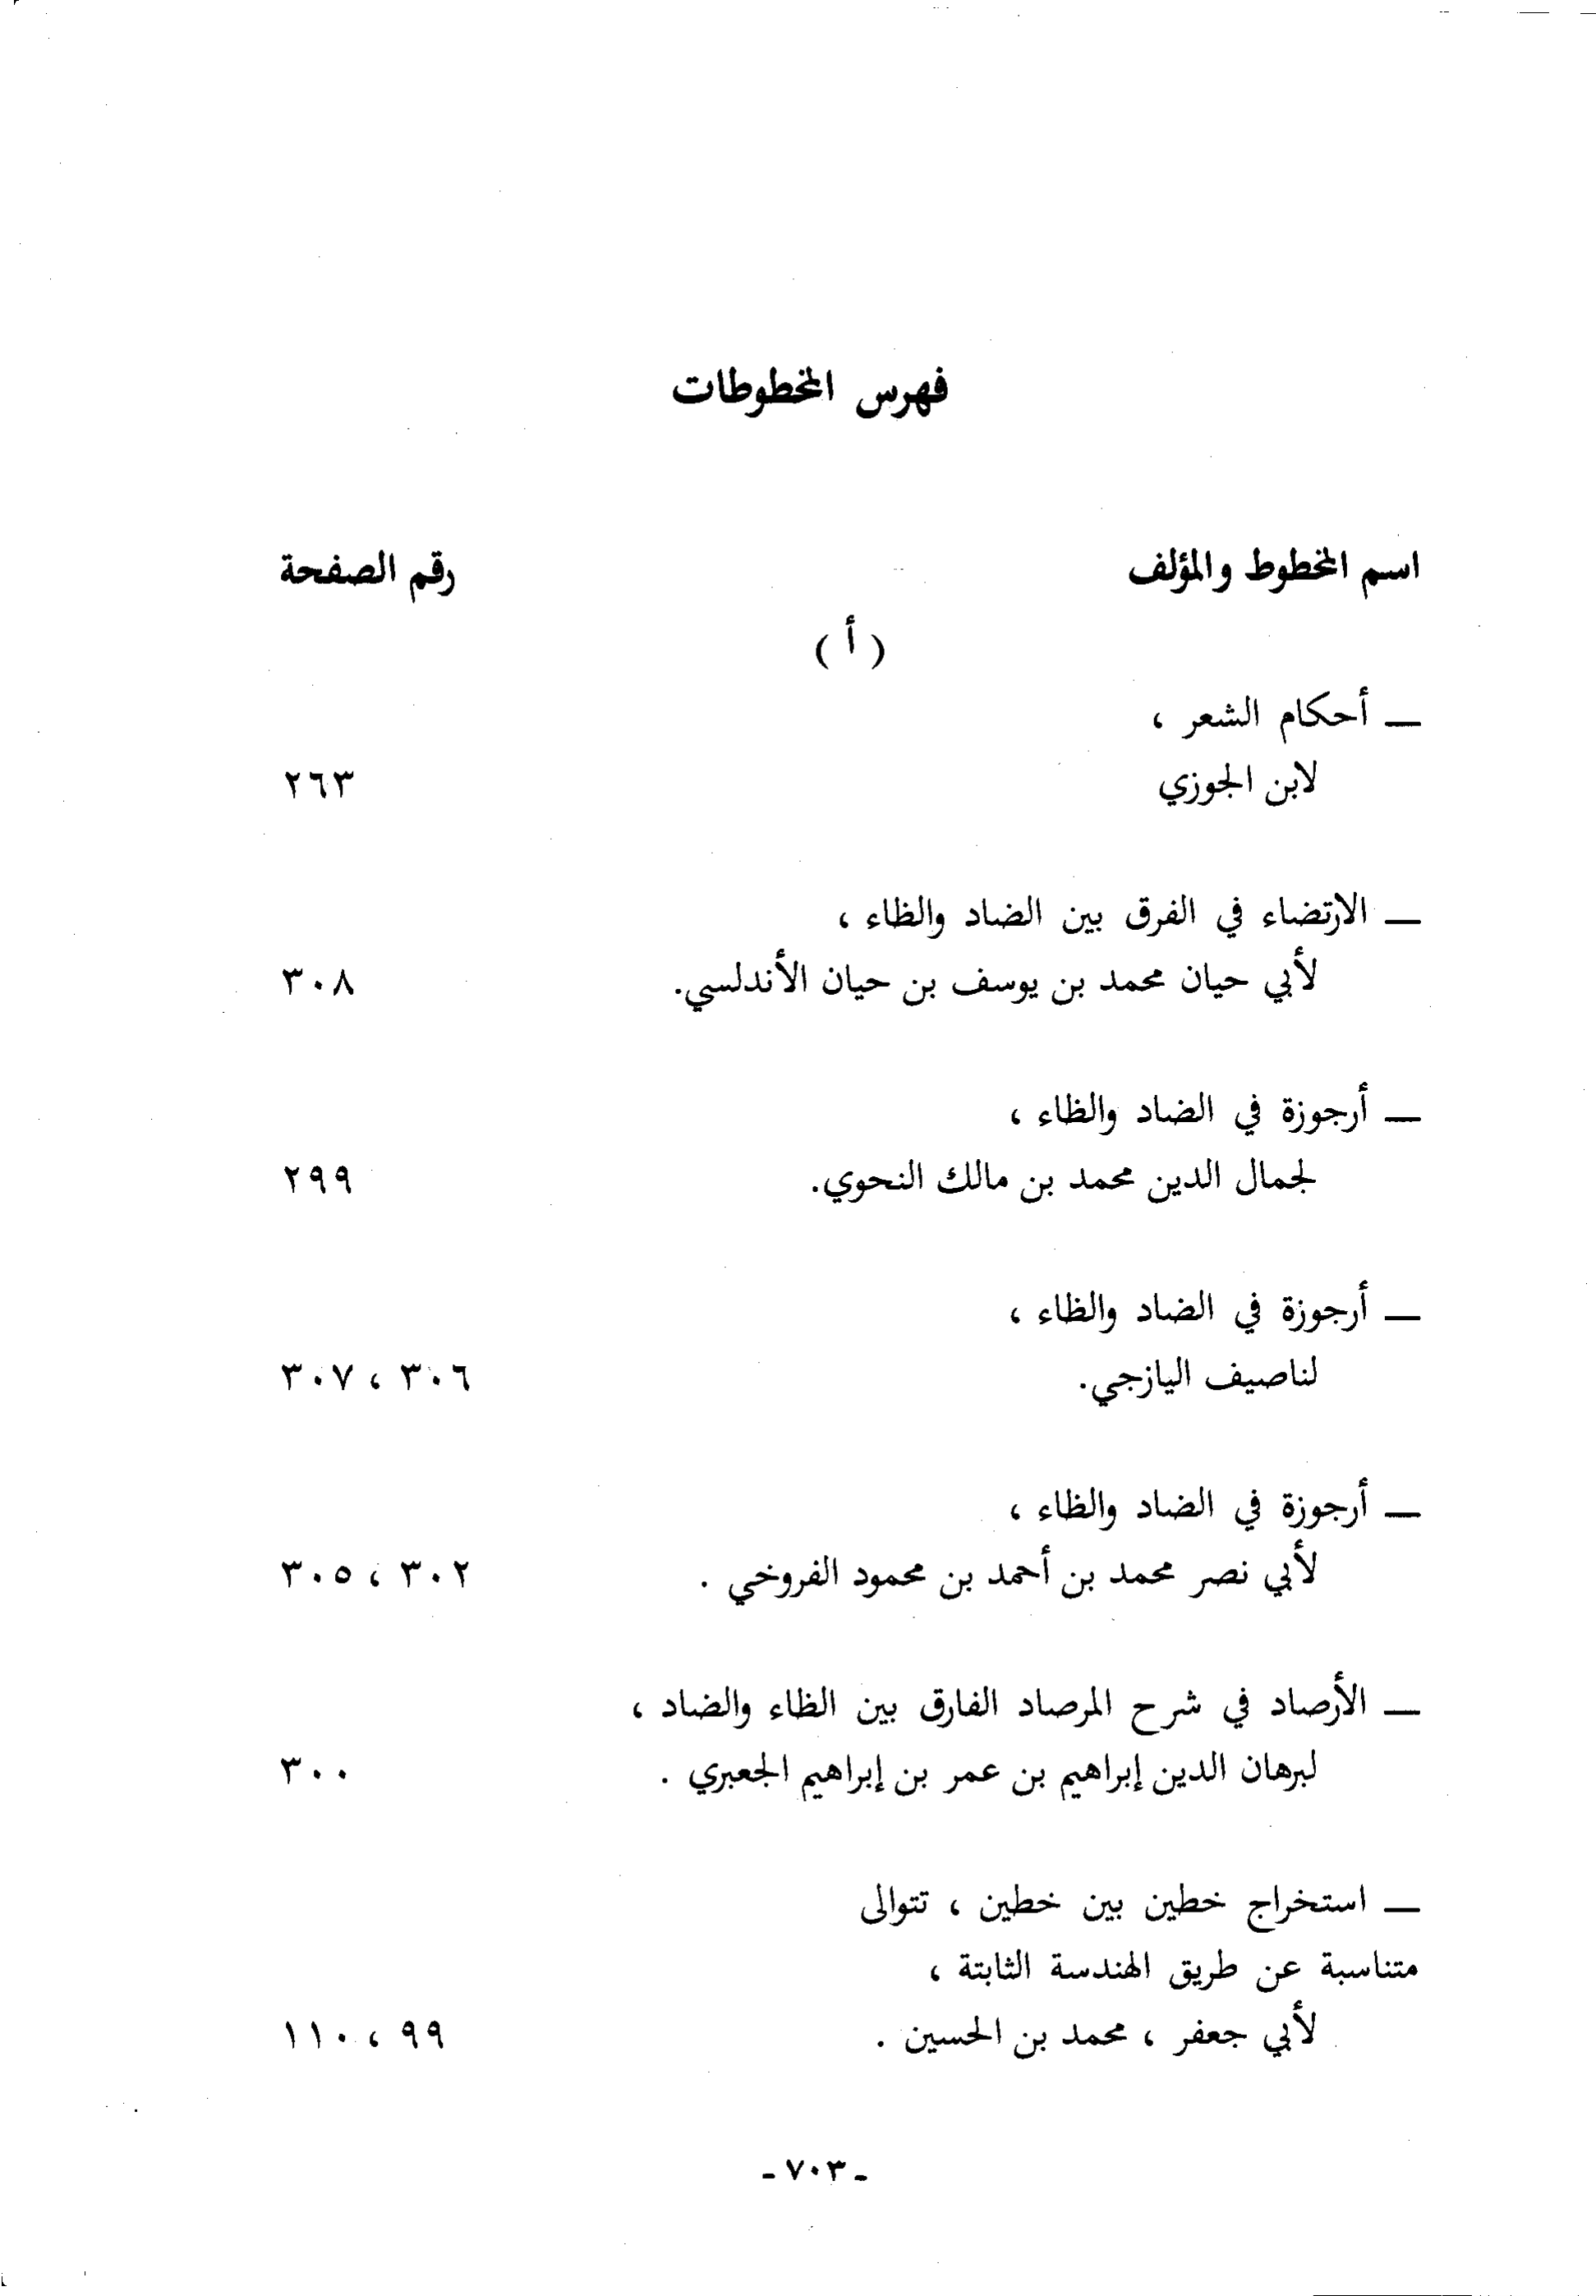 فهرس المخطوطات
اسم المخطوط والمؤلف رقم الصفحة
( أ )
— أحكام الشعر ،
لابن الجوزي ٢٦٣
— الارتضاء في الفرق بين الضاد والظاء ،
لأبي حيان محمد بن يوسف بن حيان الأندلسي. ٣٠٨
— أرجوزة في الضاد والظاء ،
لجمال الدين محمد بن مالك النحوي. ٢٩٩
— أرجوزة في الضاد والظاء ،
لناصيف اليازجي. ٣٠٦ ، ٣٠٧
— أرجوزة في الضاد والظاء ،
لأبي نصر محمد بن أحمد بن محمود الفروخي . ٣٠٢ ، ٣٠٥
— الأرصاد في شرح المرصاد الفارق بين الظاء والضاد ،
لبرهان الدين إبراهيم بن عمر بن إبراهيم الجعبري . ٣٠٠
— استخراج خطين بين خطين ، تتوالى
متناسبة عن طريق الهندسة الثابتة ،
لأبي جعفر ، محمد بن الحسين . ٩٩ ، ١١٠
- ٧٠٣ -